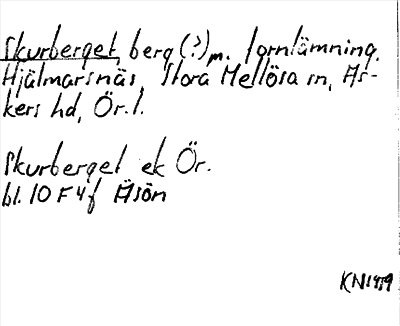 Skurberget, berg (?) m. fornlämning.
Hjälmarsnäs, Stora Mellösa sn, As-
kers hd, Ör. l.
Skurberget ek Ör.
bl. 10 F 4 f Äsön
KN 1979